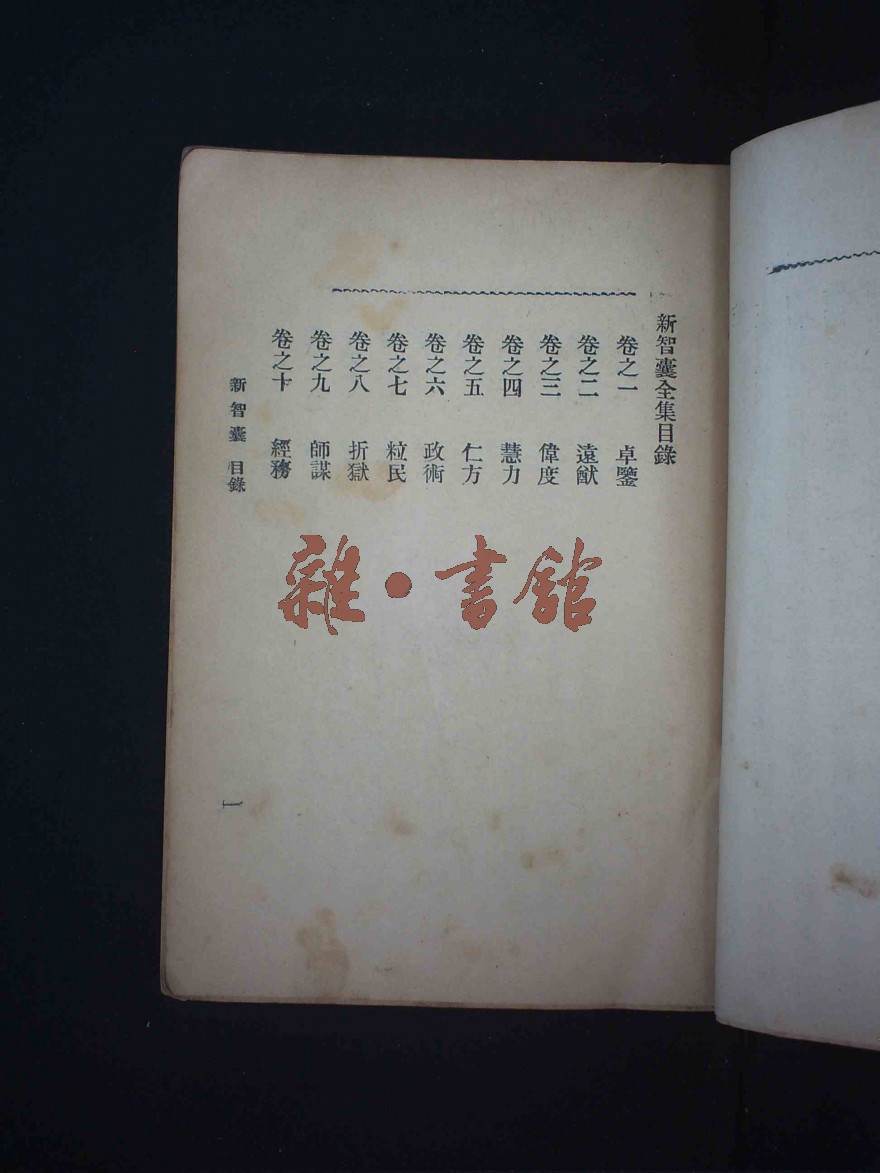 新智囊全集目錄
卷之一　卓鑒
卷之二　遠猷
卷之三　偉度
卷之四　慧力
卷之五　仁方
卷之六　政術
卷之七　粒民
卷之八　折獄
卷之九　師謀
卷之十　經務
新智囊　目錄
一
雜·書館